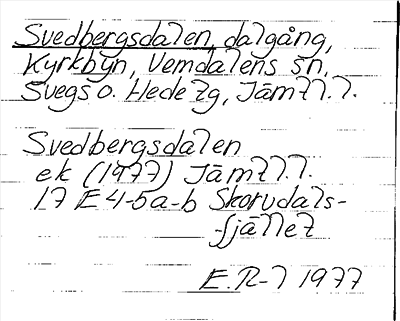 Svedbergsdalen, dalgång,
Kyrkbyn, Vemdalens sn,
Svegs o. Hede tg, Jämtl.l.
Svedbergsdalen
ek (1977) Jämtl.l.
17 E 4-5a-b Skorvdals-
-fjället
E.R-l 1977